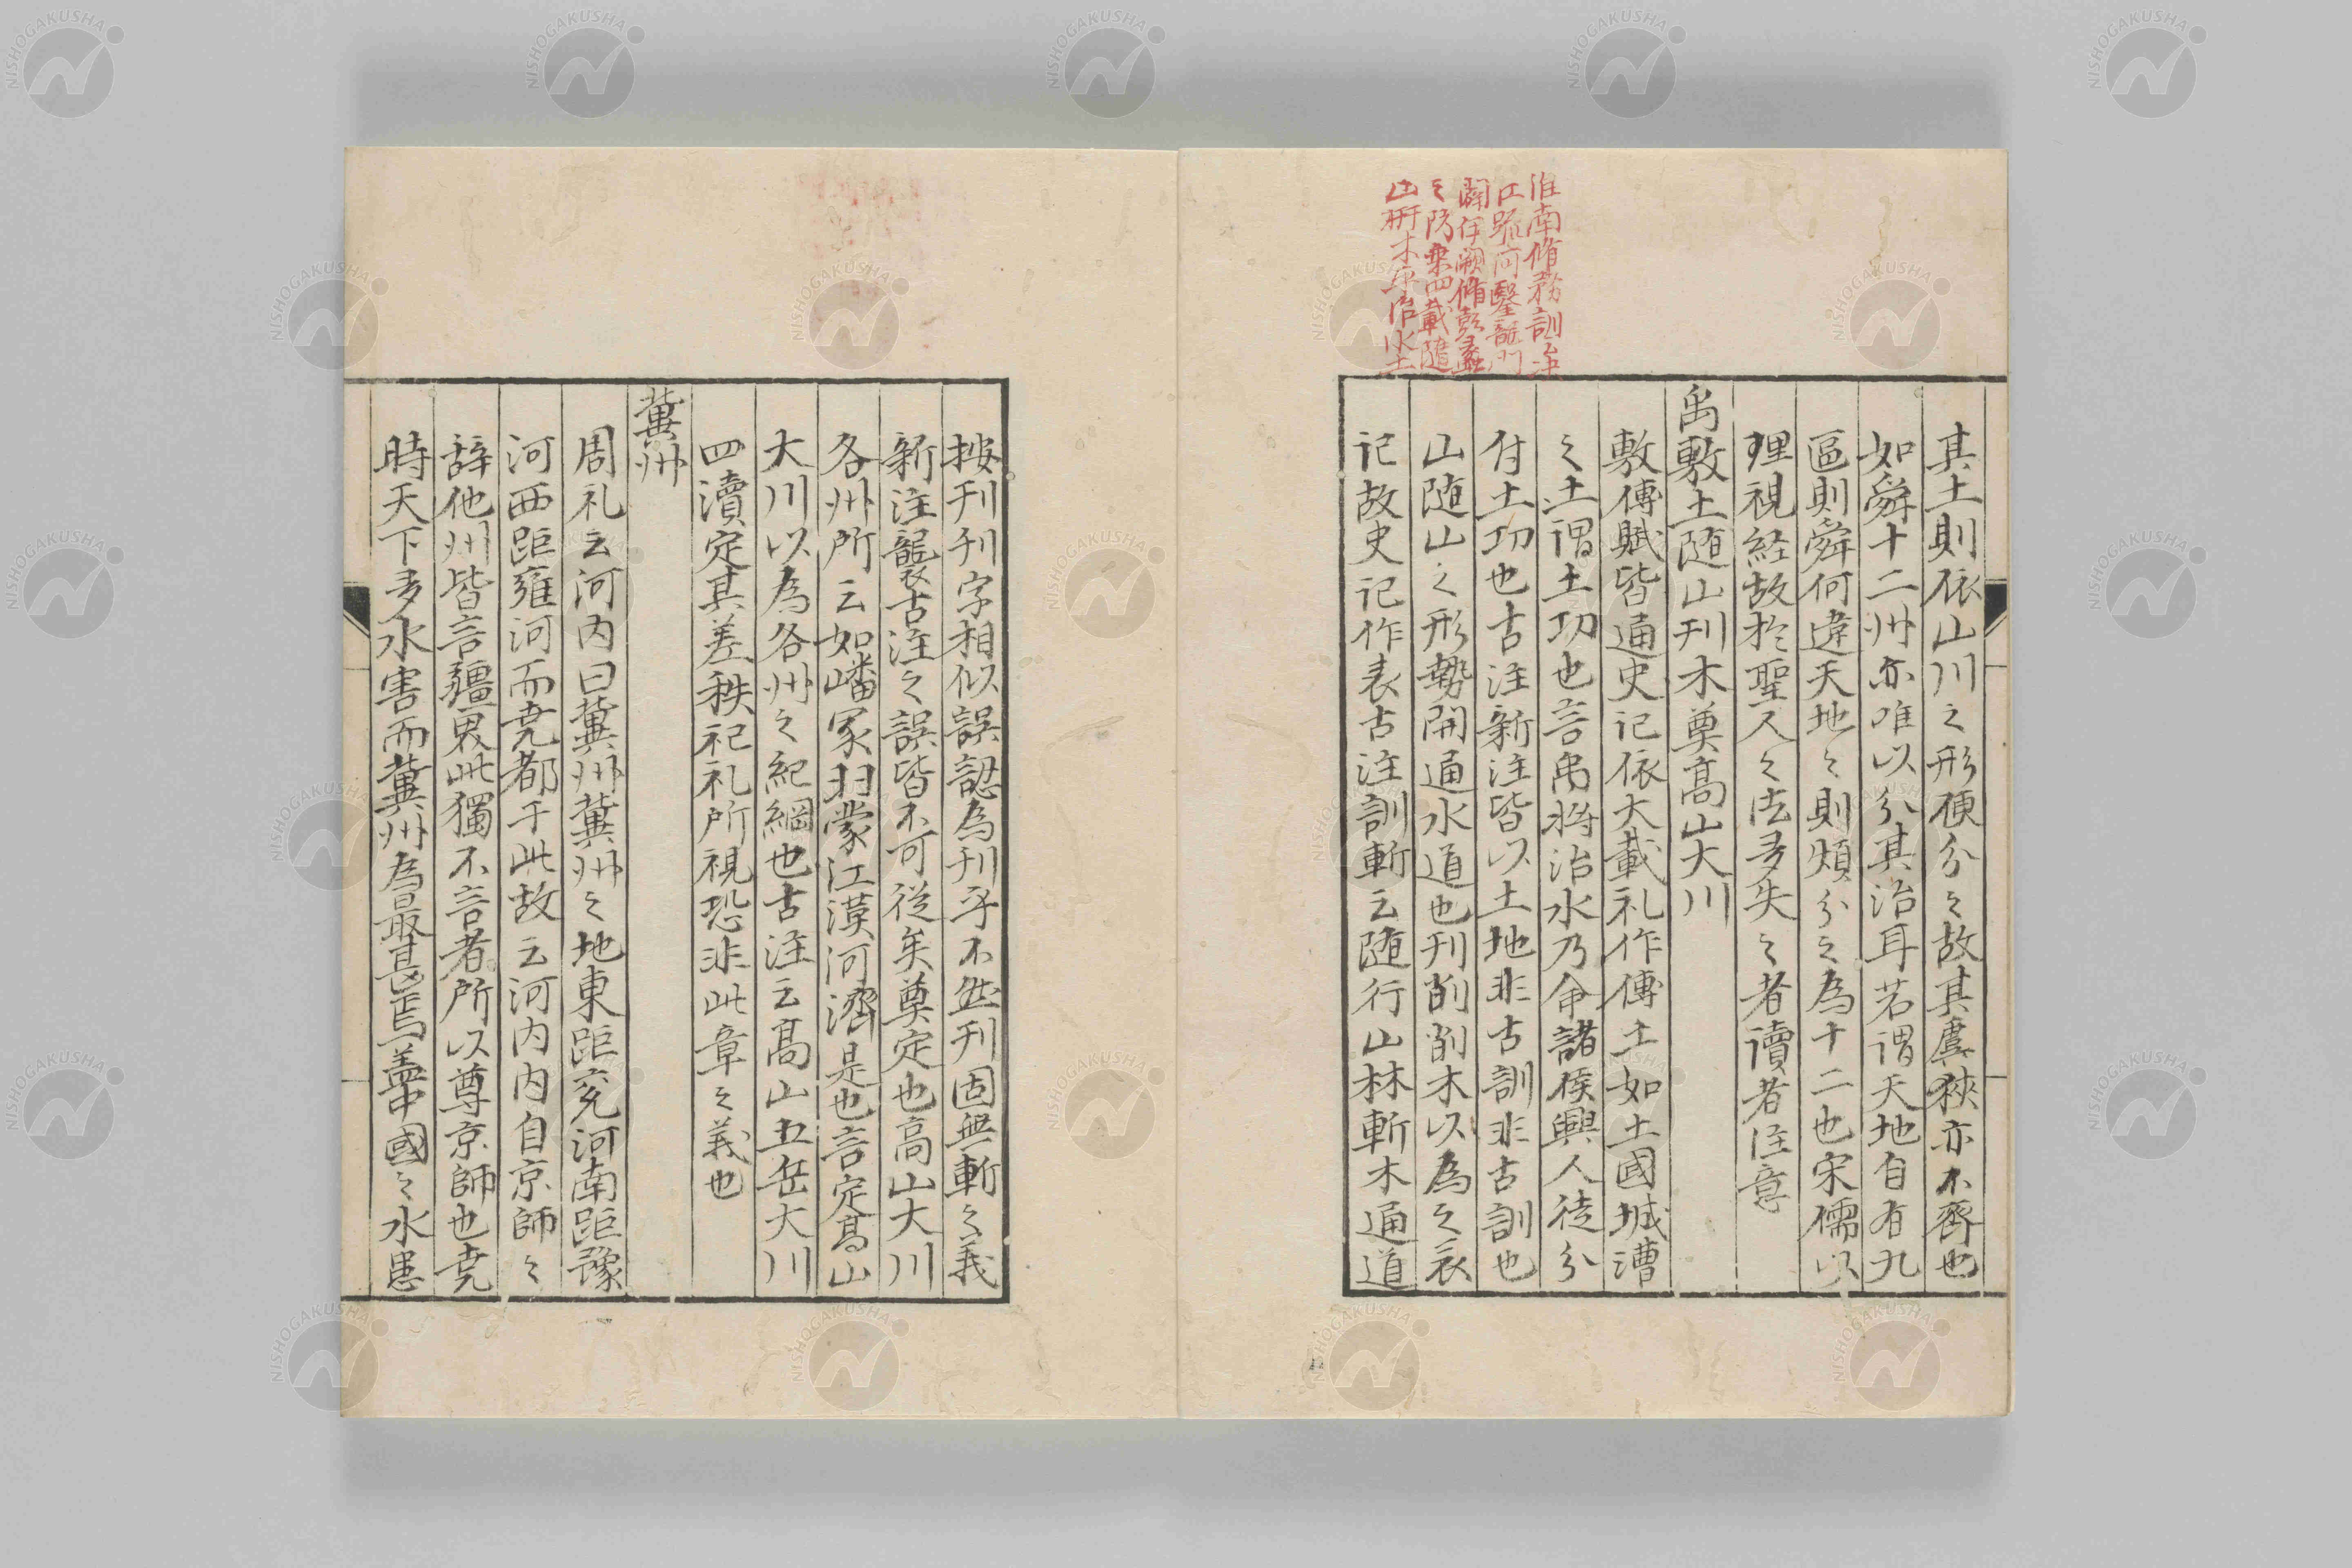 淮南脩務訓治
江疏河鑿龍門
闢伊闕脩彭蠡
之防乗四載隨
山栞木平治水土
其土則依山川之形便分之故其廣狹亦不齊也
如舜十二州亦唯以分其治耳若謂天地自有九
區則舜何違天地々則煩分之為十二也宋儒以
理視経故於聖人之法多失之者讀者注意
禹敷土随山刊木奠高山大川
敷傅賦皆通史記依大載礼作傅土如土國城漕
之土謂土功也言禹将治水乃命諸侯興人徒分
付土功也古注新注皆以土地非古訓非古訓也
山随山之形勢開通水道也刊削削木以為之表
記故史記作表古注訓斬云随行山林斬木通道
按刊刊字相似誤認為刊乎不然刊固無斬之義
新注襲古注之誤皆不可従矣奠定也高山大川
各州所云如嶓冢羽蒙江漢河濟是也言定高山
大川以為各州之紀綱也古注云高山五岳大川
四瀆定其差秩祀礼所視恐非此章之義也
冀州
周礼云河内曰冀州冀州之地東距兖河南距豫
河西距雍河而尭都于此故云河内内自京師々
辞他州皆言疆界此獨不言者所以尊京師也尭
時天下多水害而冀州為最甚焉蓋中國之水患
NISHOGAKUSHA